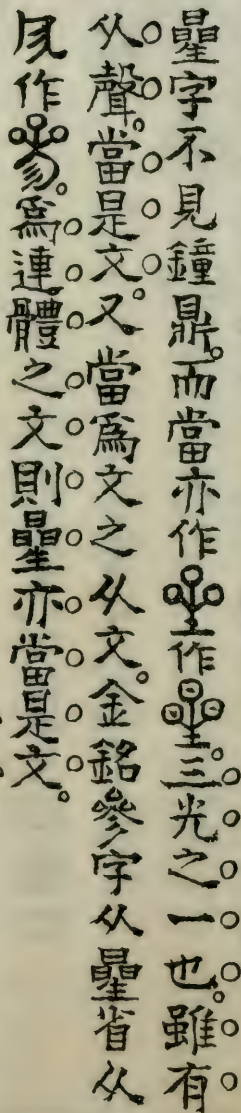 曐字不見鐘鼎。而當亦作作。三光之一也。雖有
从聲。當是文。又當爲文之从文。金銘參字从曐省从
作。爲連體之文則曐亦當是文。